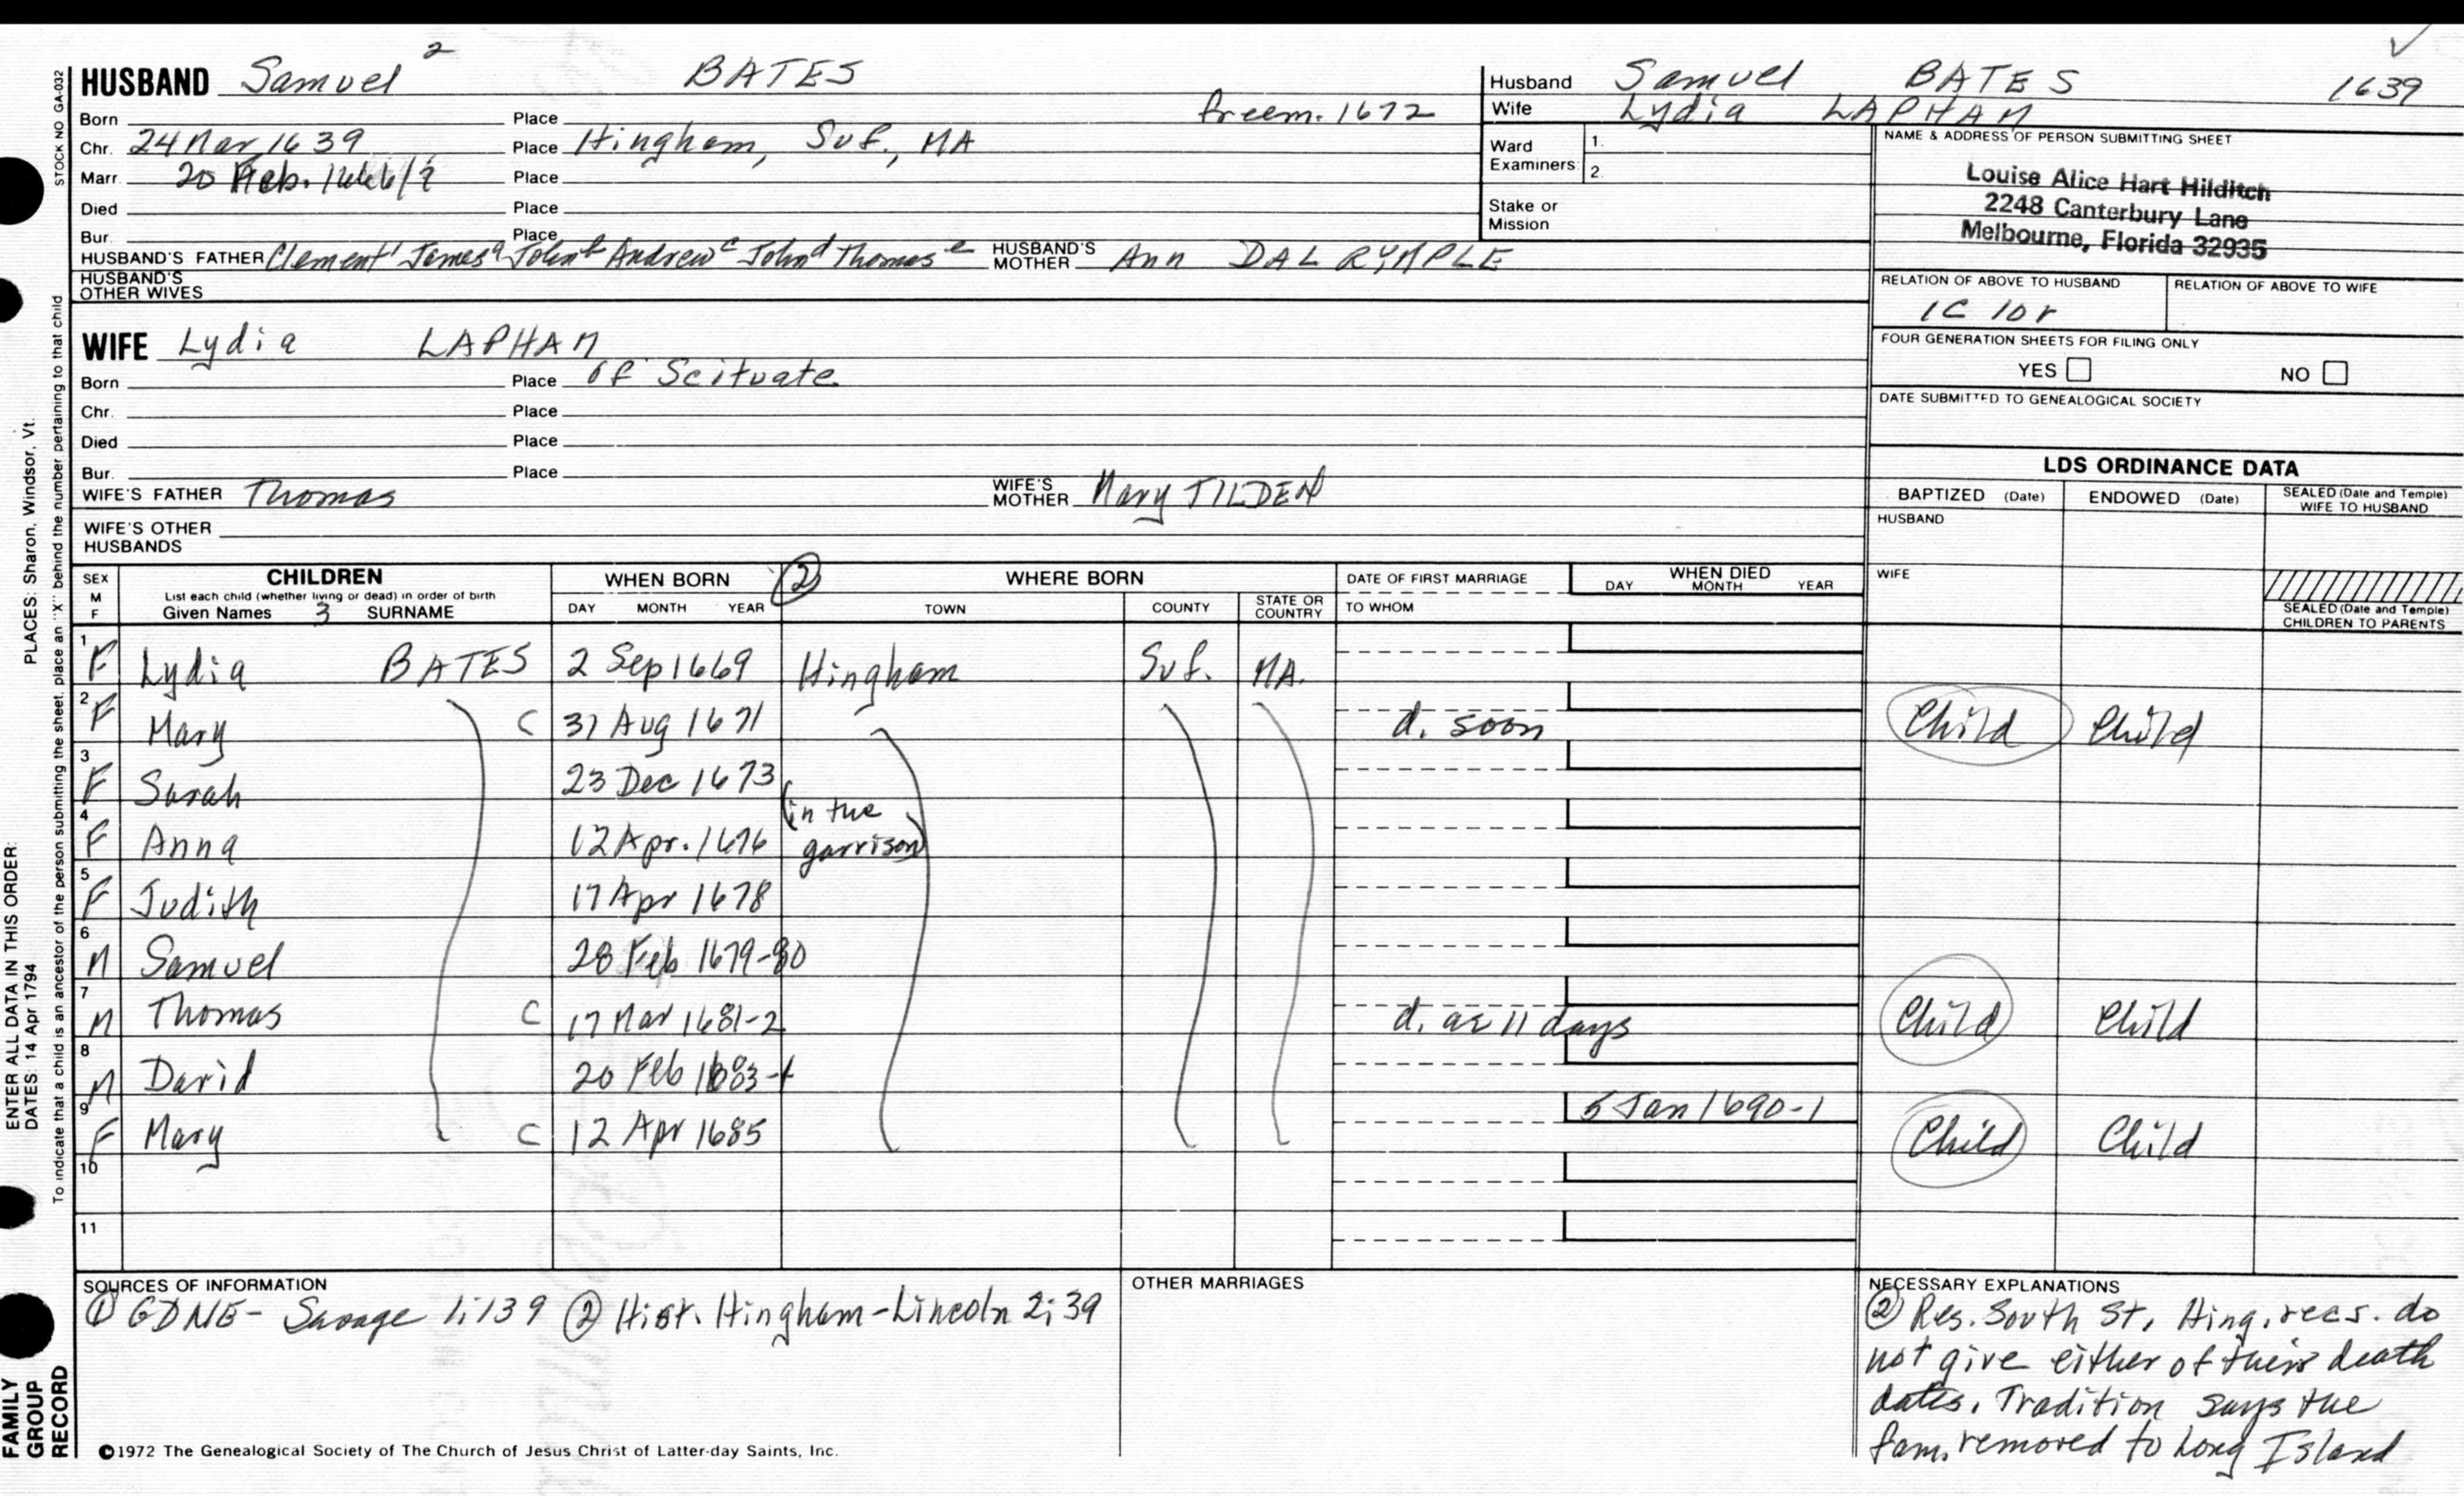 HUSBAND Samuel 2 BATES
freem. 1672
Born Place
Chr. 24 Mar 1639 Place Hingham, Suf., MA
Marr. 20 Feb. 1666/7 Place
Died Place
Bur. Place
HUSBAND'S FATHER Clement¹ James a John b Andrew c John d Thomas e HUSBAND'S MOTHER Ann DALRYMPLE
HUSBAND'S OTHER WIVES
WIFE Lydia LAPHAM
Born Place of Scituate
Chr. Place
Died Place
Bur. Place
WIFE'S FATHER Thomas WIFE'S MOTHER Mary TILDEN
WIFE'S OTHER HUSBANDS
Husband Samuel BATES 1639
Wife Lydia LAPHAM
Ward Examiners 1. 2.
Stake or Mission
NAME & ADDRESS OF PERSON SUBMITTING SHEET
Louise Alice Hart Hilditch
2248 Canterbury Lane
Melbourne, Florida 32935
RELATION OF ABOVE TO HUSBAND RELATION OF ABOVE TO WIFE
1C 10r
FOUR GENERATION SHEETS FOR FILING ONLY
YES NO
DATE SUBMITTED TO GENEALOGICAL SOCIETY
LDS ORDINANCE DATA
BAPTIZED (Date) ENDOWED (Date) SEALED (Date and Temple) WIFE TO HUSBAND
HUSBAND
WIFE
SEALED (Date and Temple) CHILDREN TO PARENTS
SEX M F CHILDREN WHEN BORN ② WHERE BORN DATE OF FIRST MARRIAGE WHEN DIED
List each child (whether living or dead) in order of birth
Given Names 3 SURNAME DAY MONTH YEAR TOWN COUNTY STATE OR COUNTRY TO WHOM DAY MONTH YEAR
1 F Lydia BATES 2 Sep 1669 Hingham Suf. MA.
2 F Mary C 31 Aug 1671 d. soon Child Child
3 F Sarah 23 Dec 1673
4 F Anna 12 Apr. 1676 (in the garrison)
5 F Judith 17 Apr 1678
6 M Samuel 28 Feb 1679-80
7 M Thomas C 17 Mar 1681-2 d. ae 11 days Child Child
8 M David 20 Feb 1683-4
9 F Mary C 12 Apr 1685 5 Jan 1690-1 Child Child
10
11
SOURCES OF INFORMATION
① GDNE- Savage 1:139 ② Hist. Hingham-Lincoln 2:39
OTHER MARRIAGES
NECESSARY EXPLANATIONS
② Res. South St, Hing. recs. do
not give either of their death
dates. Tradition says the
fam. removed to Long Island
©1972 The Genealogical Society of The Church of Jesus Christ of Latter-day Saints, Inc.
STOCK NO. GA-032
To indicate that a child is an ancestor of the person submitting the sheet, place an "X" behind the number pertaining to that child
PLACES: Sharon, Windsor, Vt.
ENTER ALL DATA IN THIS ORDER:
DATES: 14 Apr 1794
FAMILY
GROUP
RECORD